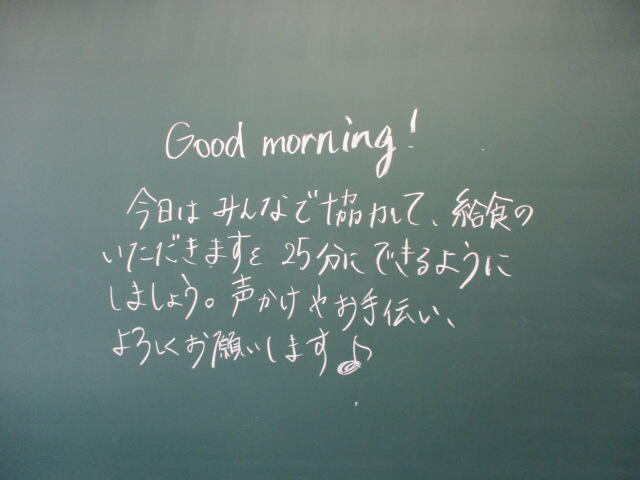 Good morning!
今日はみんなで協力して、給食の
いただきますを25分にできるように
しましょう。声かけやお手伝い、
よろしくお願いします♪